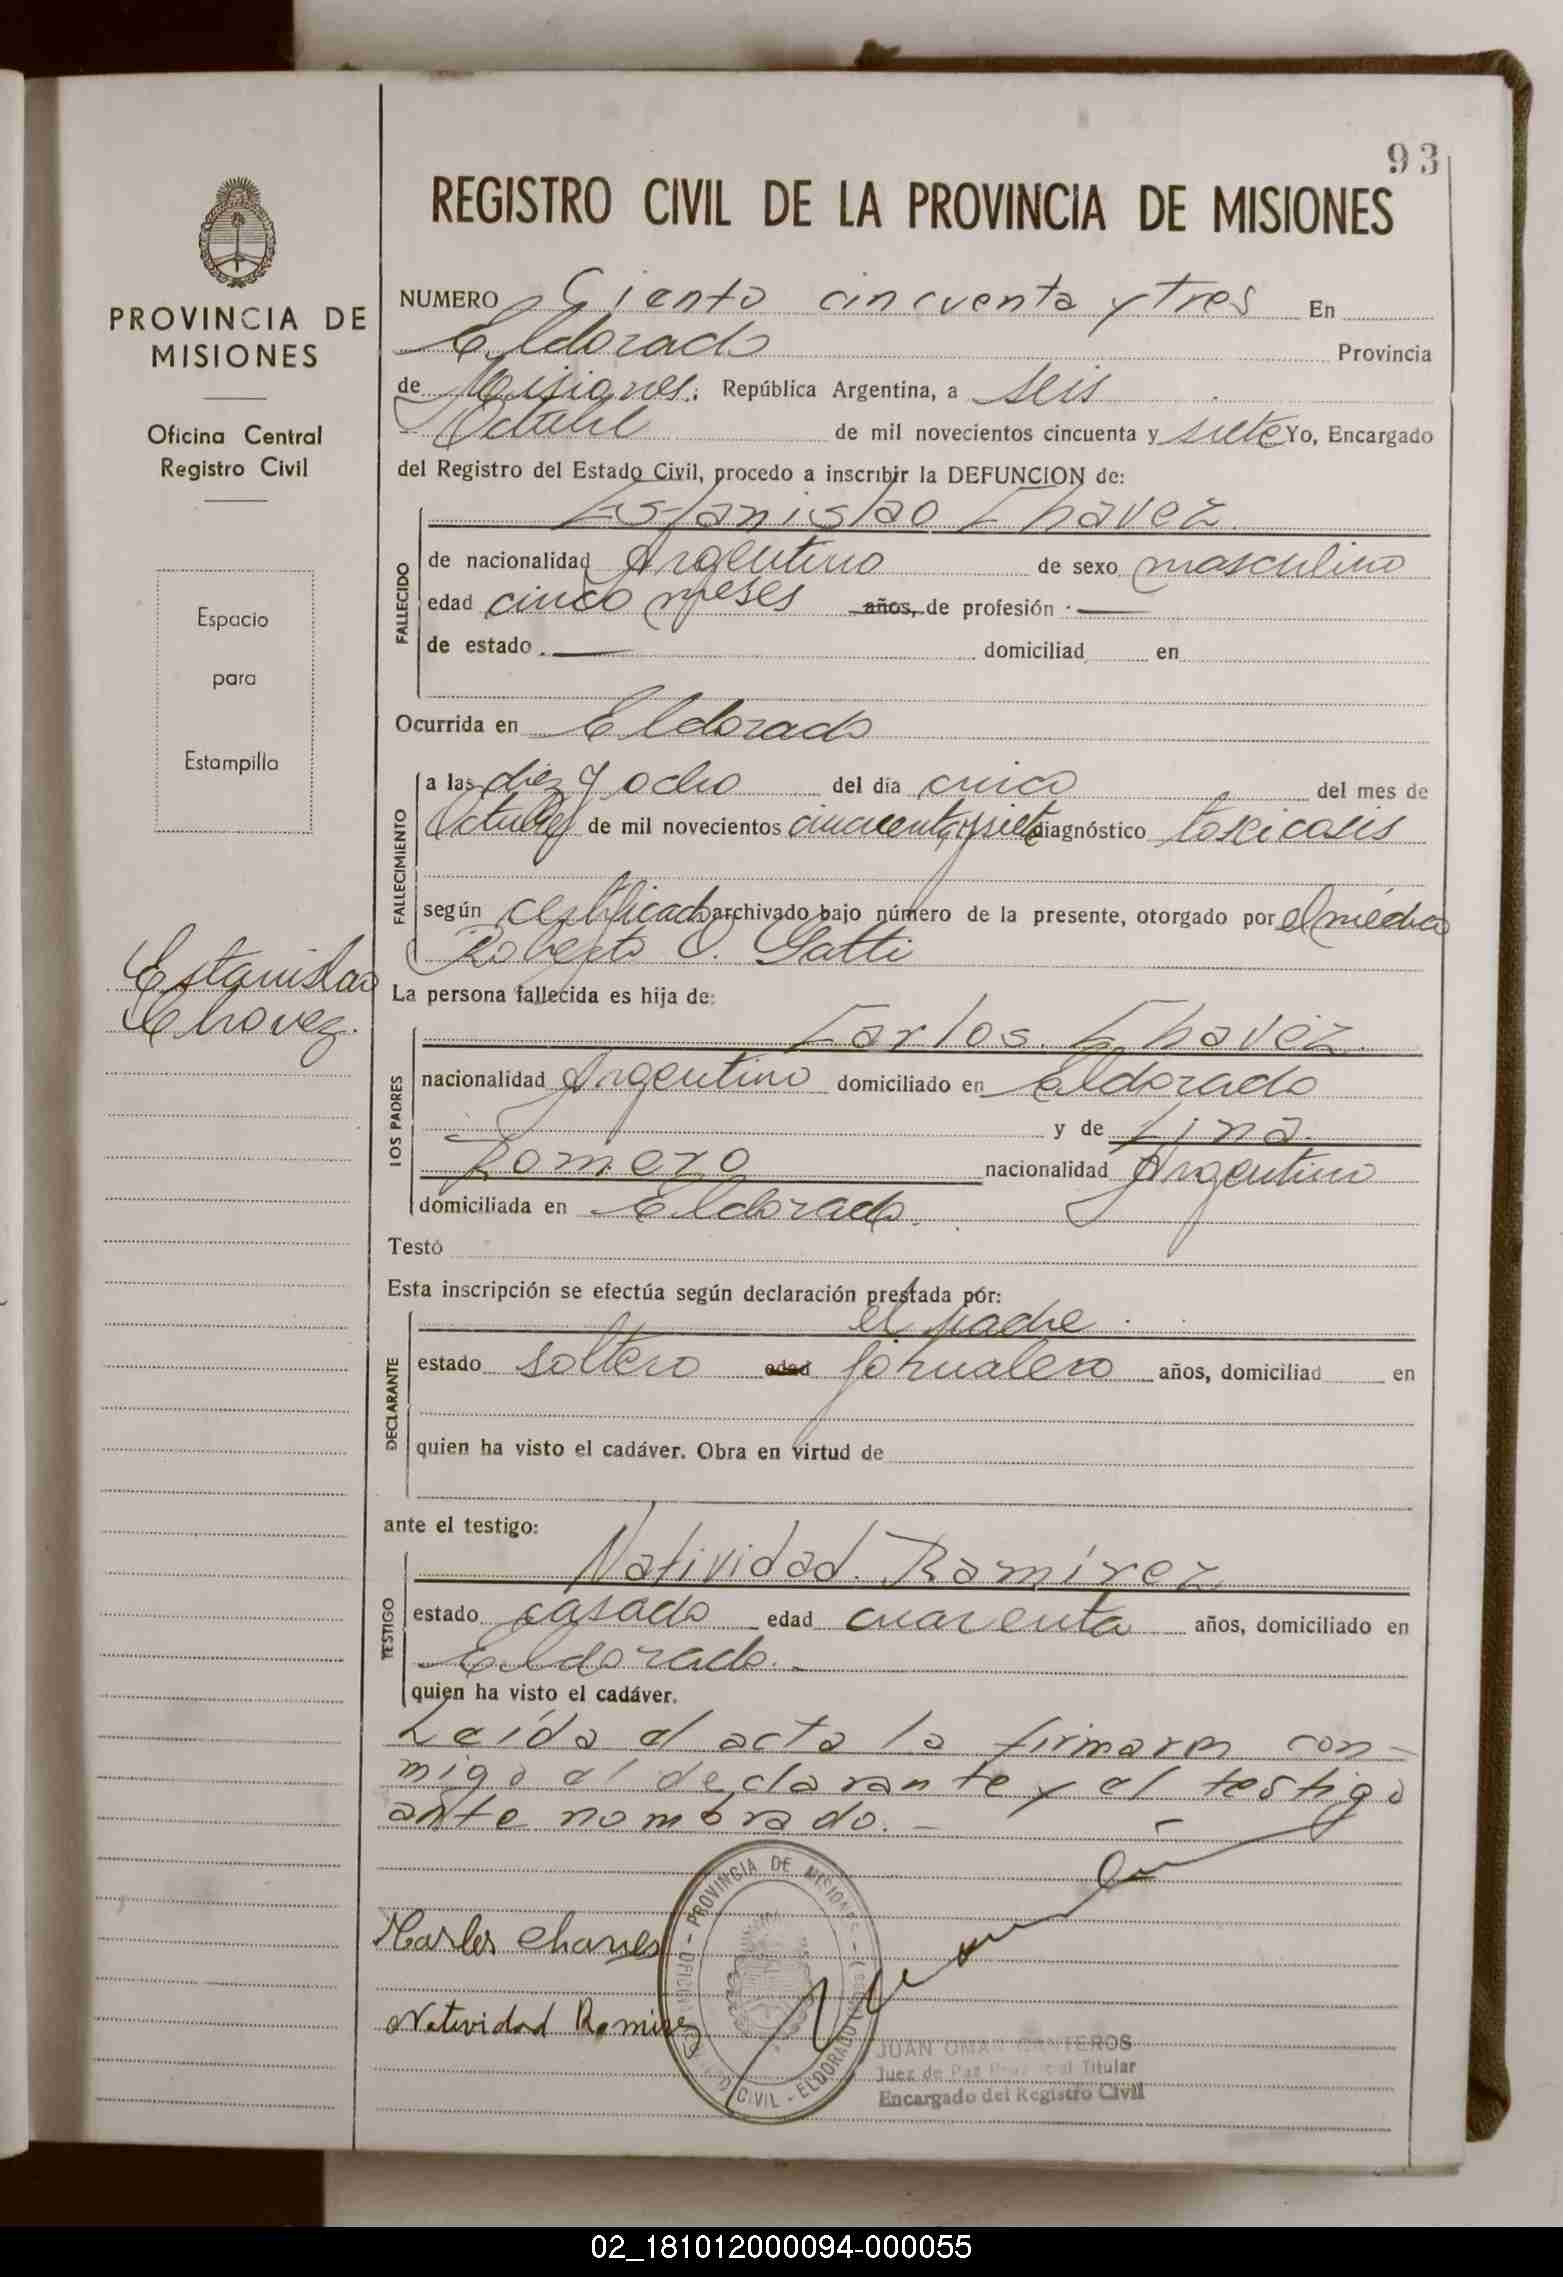 93
REGISTRO CIVIL DE LA PROVINCIA DE MISIONES
PROVINCIA DE
MISIONES
Oficina Central
Registro Civil
Espacio
para
Estampilla
Estanislao
Chavez.
NUMERO Ciento cincuenta y tres En
Eldorado Provincia
de Misiones. República Argentina, a seis
Octubre de mil novecientos cincuenta y siete Yo, Encargado
del Registro del Estado Civil, procedo a inscribir la DEFUNCION de:
Estanislao Chavez.
FALLECIDO
de nacionalidad Argentino de sexo masculino
edad cinco meses años, de profesión
de estado domiciliad en
Ocurrida en Eldorado
FALLECIMIENTO
a las diez y ocho del día cinco del mes de
Octubre de mil novecientos cincuenta y siete diagnóstico toxicosis
según certificado archivado bajo número de la presente, otorgado por el médico
Roberto O. Gatti
La persona fallecida es hija de:
LOS PADRES
Carlos. Chavez.
nacionalidad Argentino domiciliado en Eldorado
y de Lina.
Romero nacionalidad Argentino
domiciliada en Eldorado.
Testó
Esta inscripción se efectúa según declaración prestada por:
DECLARANTE
el padre.
estado soltero edad jornalero años, domiciliad en
quien ha visto el cadáver. Obra en virtud de
ante el testigo:
TESTIGO
Natividad. Ramírez
estado casado edad cuarenta años, domiciliado en
Eldorado.-
quien ha visto el cadáver.
Leída el acta la firmaron con-
migo el declarante y el testigo
ante nombrado.-
Karlos Chaves
Natividad Ramirez
PROVINCIA DE MISIONES
CIVIL - ELDORADO
JUAN OMAR CANTEROS
Juez de Paz Titular
Encargado del Registro Civil
02_181012000094-000055